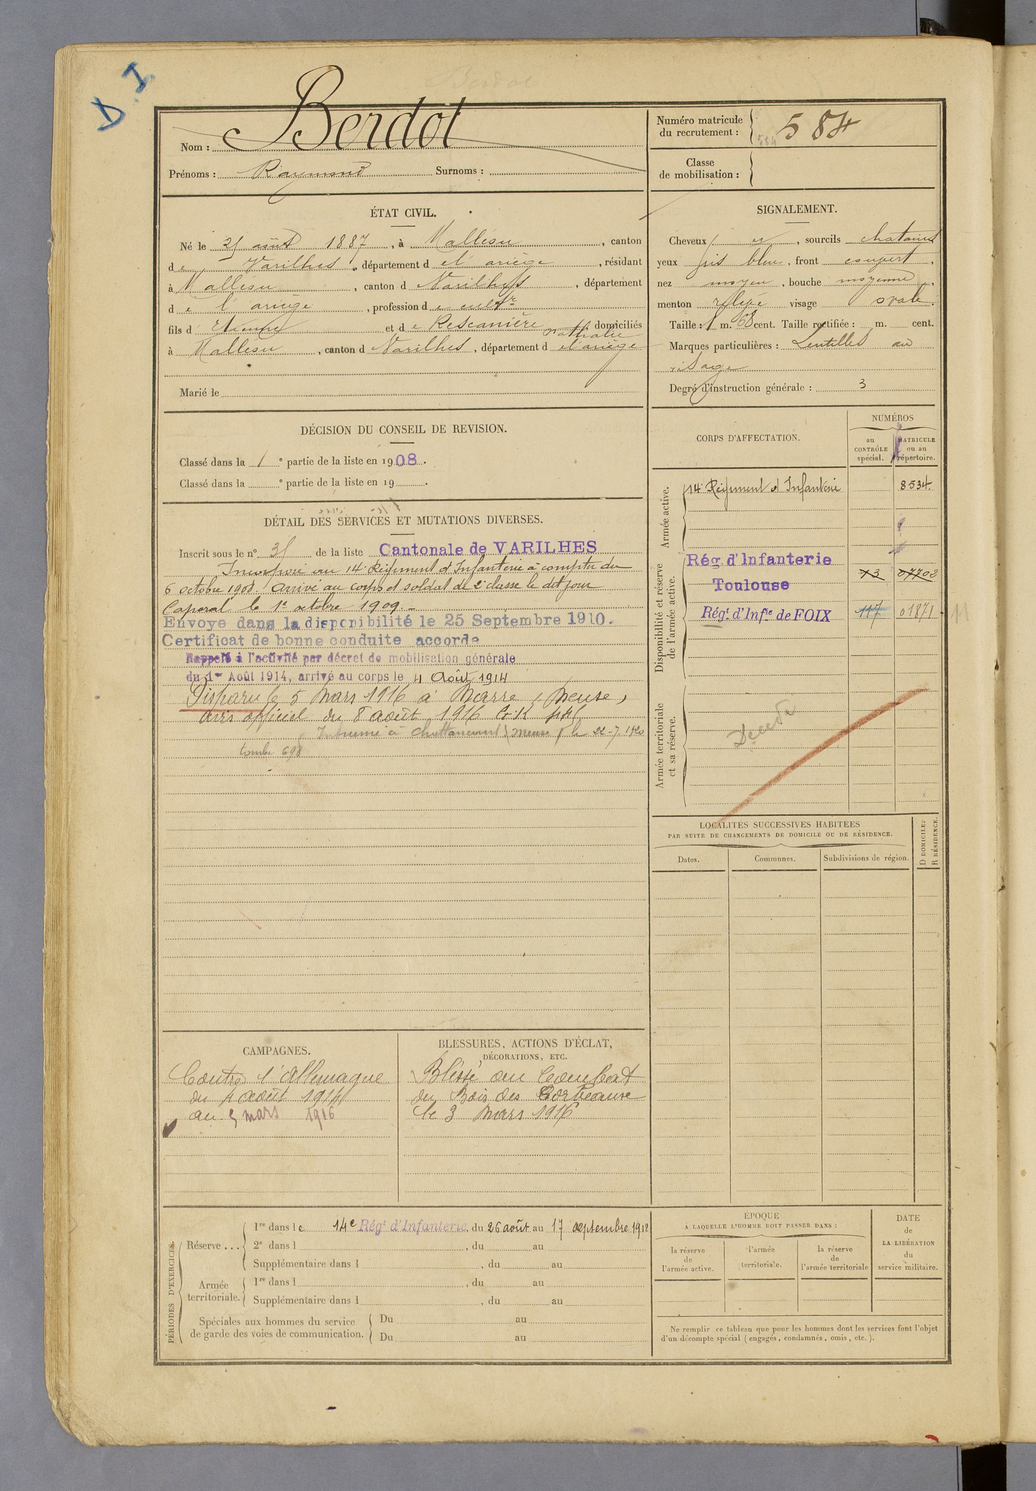 D. I.
Nom : Berdot
Prénoms : Raymond Surnoms :
Numéro matricule du recrutement : 584
Classe de mobilisation :
ÉTAT CIVIL.
Né le août 1887, à Mallesu, canton
de Varilhes, département de l'ariège, résidant
à Mallesu, canton de Varilhes, département
de l'ariège, profession de cultr
fils d' Etienne et de Rescanière Nathalie domiciliés
à Mallesu, canton de Varilhes, département de l'ariège
Marié le
SIGNALEMENT.
Cheveux et, sourcils chatains
yeux gris bleu, front couvert,
nez moyen, bouche moyenne,
menton relevé visage ovale.
Taille : 1 m. 68 cent. Taille rectifiée : m. cent.
Marques particulières : Lentilles au
visage
Degré d'instruction générale : 3
DÉCISION DU CONSEIL DE REVISION.
Classé dans la 1e partie de la liste en 1908.
Classé dans la e partie de la liste en 19 .
DÉTAIL DES SERVICES ET MUTATIONS DIVERSES.
Inscrit sous le n° de la liste Cantonale de VARILHES
Incorporé au 14e Régiment d'Infanterie à compter du
6 octobre 1908. Arrivé au corps et soldat de 2e classe le dit jour
Caporal le 1er octobre 1909.
Envoyé dans la disponibilité le 25 Septembre 1910.
Certificat de bonne conduite accordé
Rappelé à l'activité par décret de mobilisation générale
du 1er Août 1914, arrivé au corps le 4 Août 1914
Disparu le 5 Mars 1916 à Marre (Meuse)
avis officiel du 8 août 1916
Inhumé à Chattancourt (Meuse) le 22-7-1920
tombe 698
CORPS D'AFFECTATION.
NUMÉROS
au CONTRÔLE spécial.
MATRICULE ou au répertoire.
Armée active.
14e Régiment d'Infanterie 8534.
Disponibilité et réserve de l'armée active.
Rég. d'Infanterie
Toulouse 73 07708
Régt d'Infie de FOIX 117 01871
11
Armée territoriale et sa réserve.
Décédé
LOCALITÉS SUCCESSIVES HABITÉES
PAR SUITE DE CHANGEMENTS DE DOMICILE OU DE RÉSIDENCE.
Dates. Communes. Subdivisions de région. D DOMICILE; R RÉSIDENCE.
CAMPAGNES.
Contre l'Allemagne
du 4 août 1914
au 5 mars 1916
BLESSURES, ACTIONS D'ÉCLAT,
DÉCORATIONS, ETC.
Blessé au Combat
du Bois des Corbeaux
le 3 Mars 1916
PÉRIODES D'EXERCICES.
Réserve... 1re dans le 14e Régt d'Infanterie, du 26 août au 17 septembre 1912
2e dans l , du au
Supplémentaire dans l , du au
Armée territoriale. 1re dans l , du au
Supplémentaire dans l , du au
Spéciales aux hommes du service de garde des voies de communication. Du au
Du au
ÉPOQUE
À LAQUELLE L'HOMME DOIT PASSER DANS :
la réserve de l'armée active.
l'armée territoriale.
la réserve de l'armée territoriale
DATE de LA LIBÉRATION du service militaire.
Ne remplir ce tableau que pour les hommes dont les services font l'objet
d'un décompte spécial (engagés, condamnés, omis, etc.).